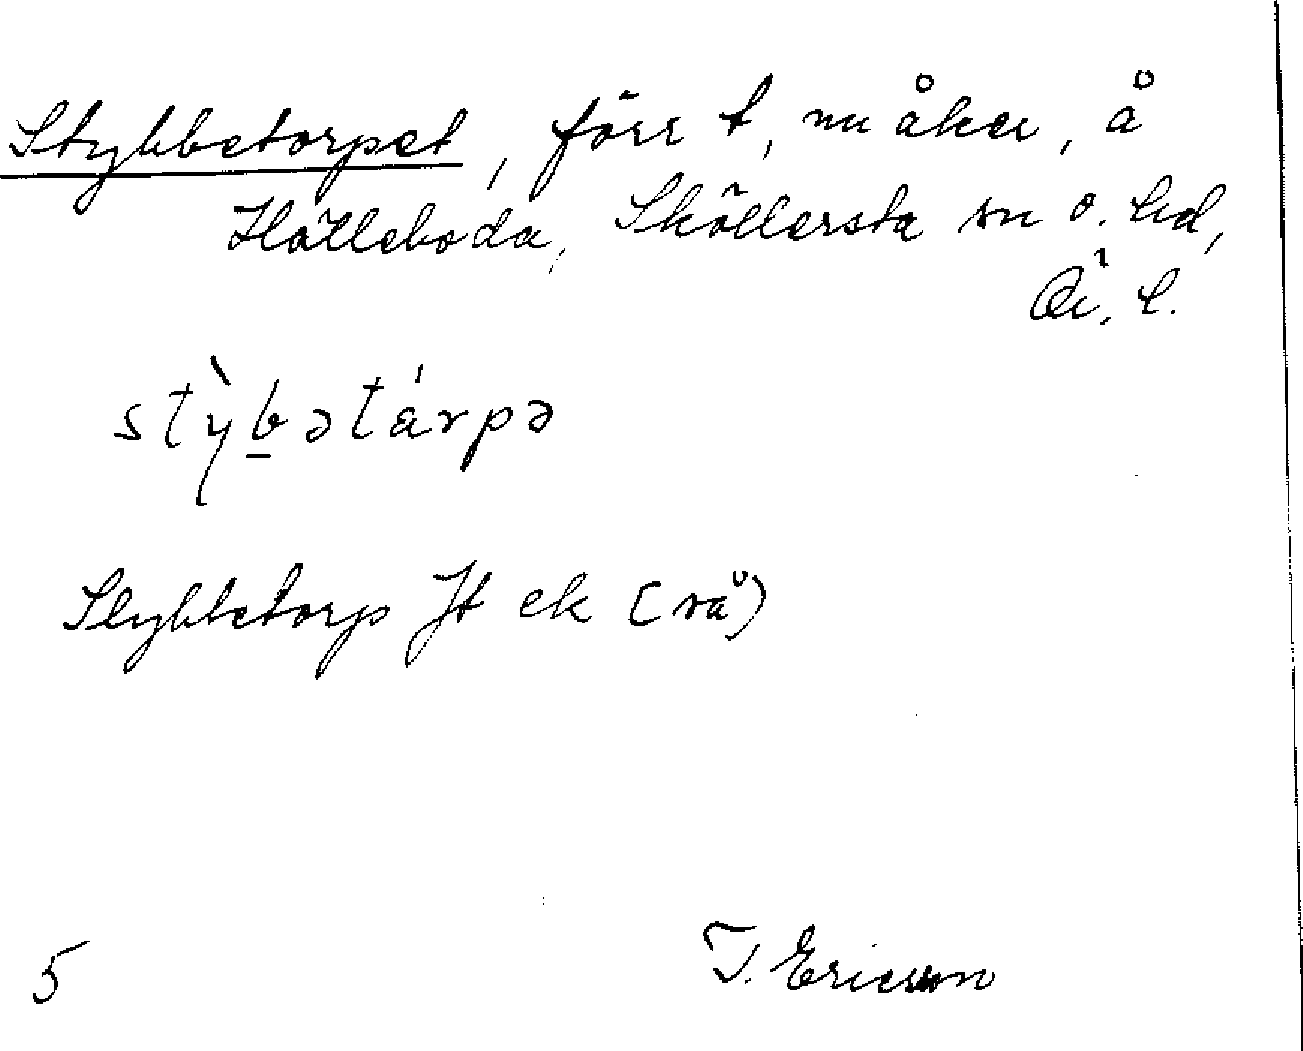 Stybbetorpet, förr t, nu åker, å
Hälleboda, Sköllersta sn o. hd,
Ör. l.
stỳbətárpə
Stybbetorp Jt ek (rå)
5
T. Ericsson